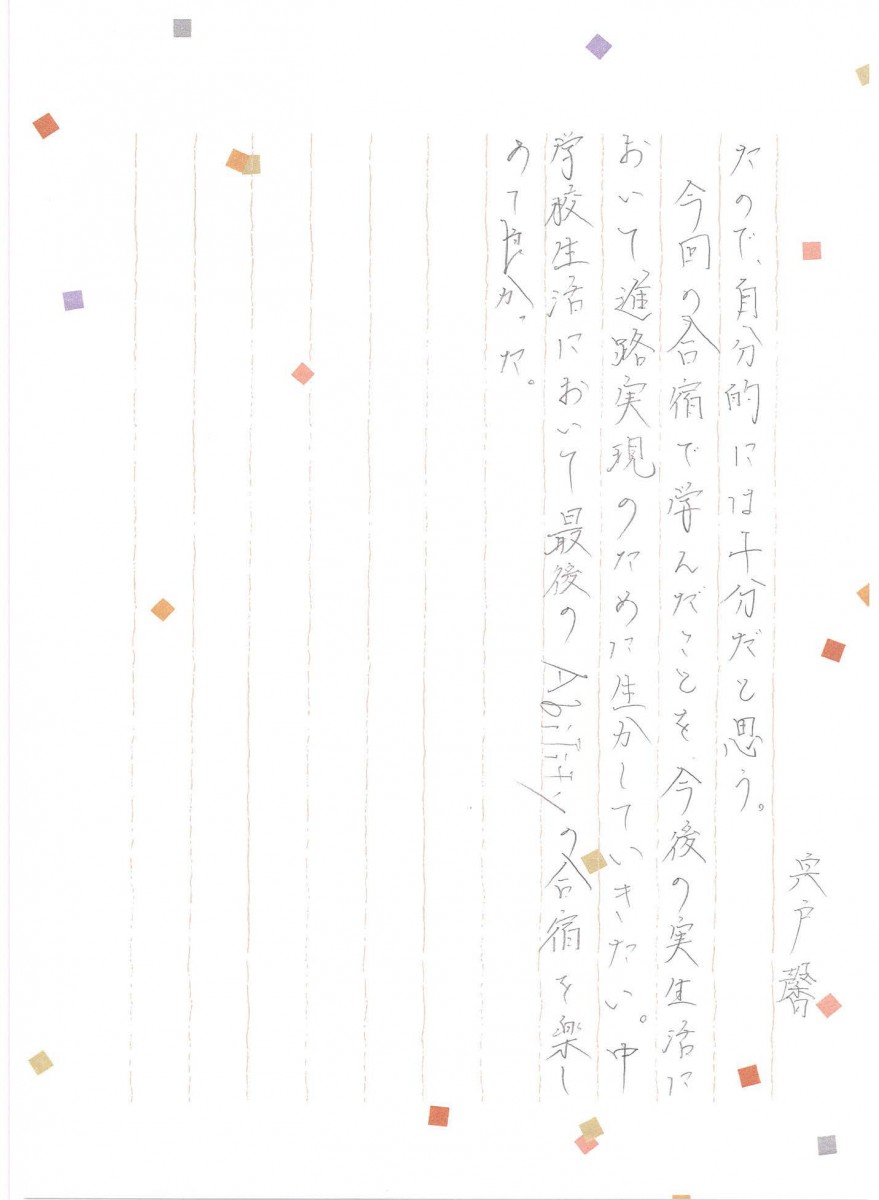 宍戸馨
たので、自分的には十分だと思う。
今回の合宿で学んだことを、今後の実生活に
おいて進路実現のために生かしていきたい。中
学校生活において最後のAbilityの合宿を楽し
めて良かった。